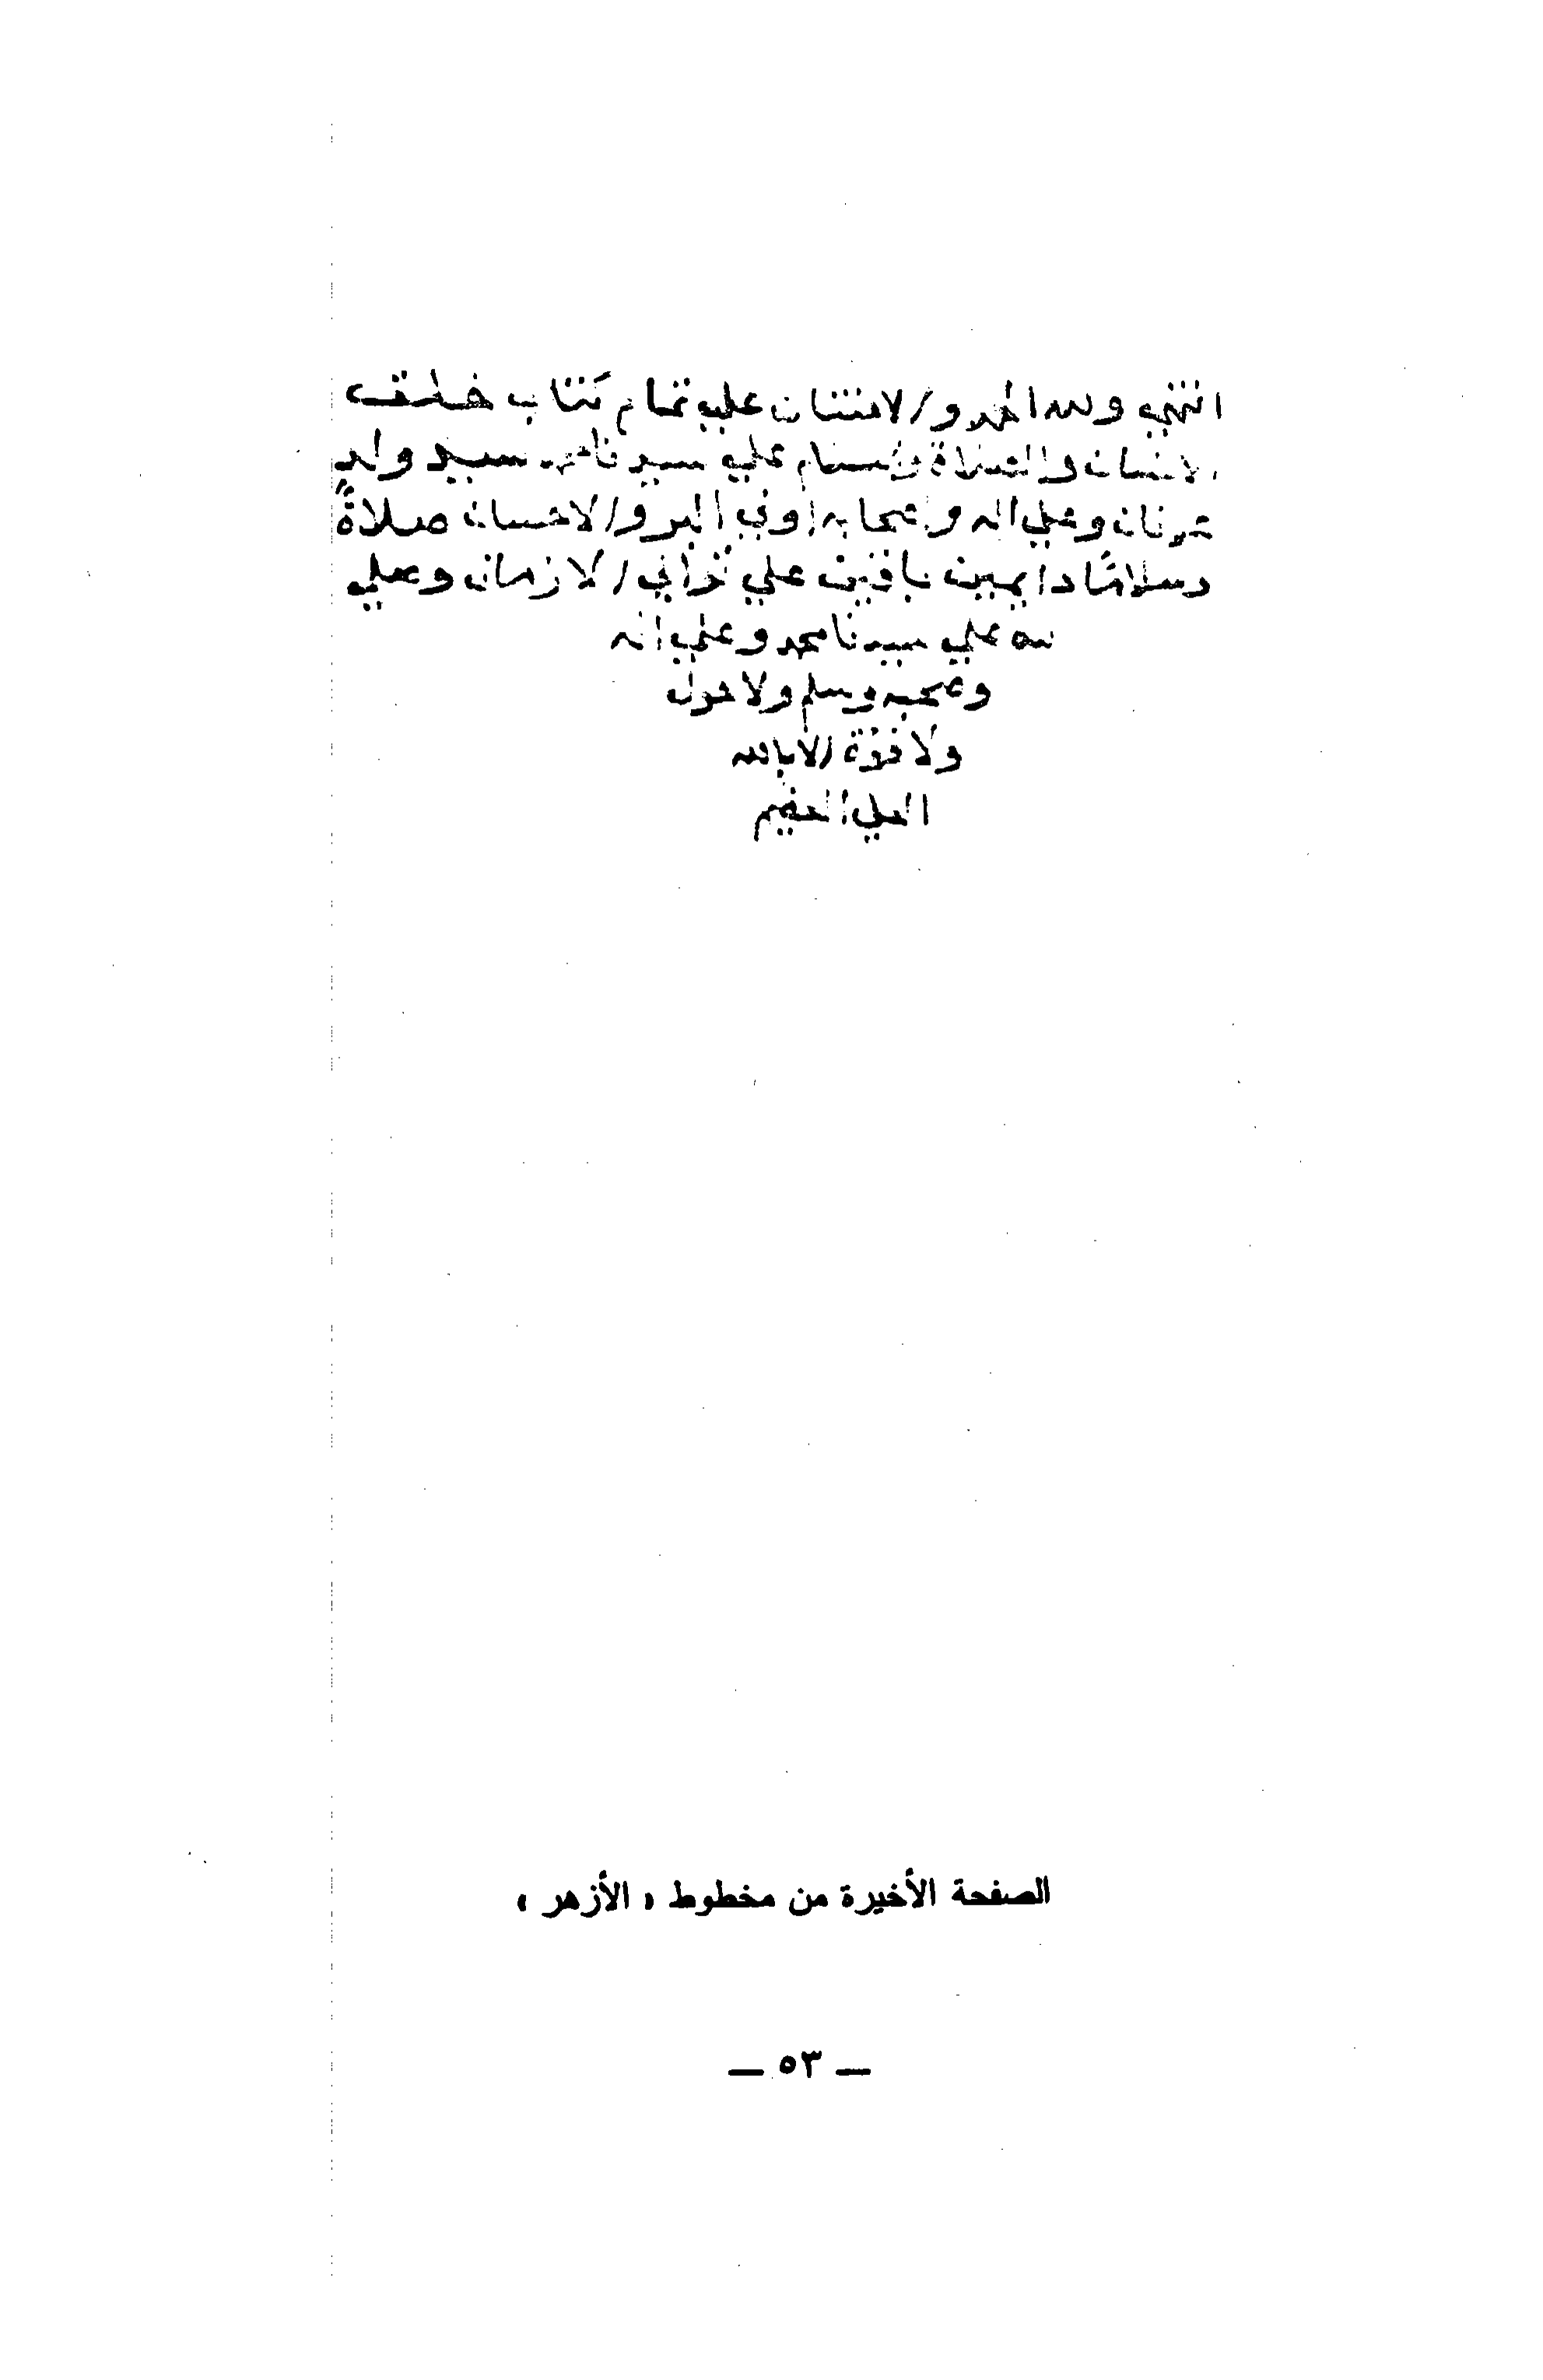 انتهي ولله الحمد والامتنان علي تمام كتاب خلق
الانسان والصلاة والسلام علي سيدنا محمد سيد ولد
عدنان وعلي اله واصحابه اولي البر والاحسان صلاةً
وسلامًا دايمين باقيين علي توالي الازمان وصلي
الله علي سيدنا محمد وعلي اله
وصحبه وسلم ولا حول
ولا قوة الا بالله
العلي العظيم
الصفحة الأخيرة من مخطوط « الأزهر »
— ٥٣ —